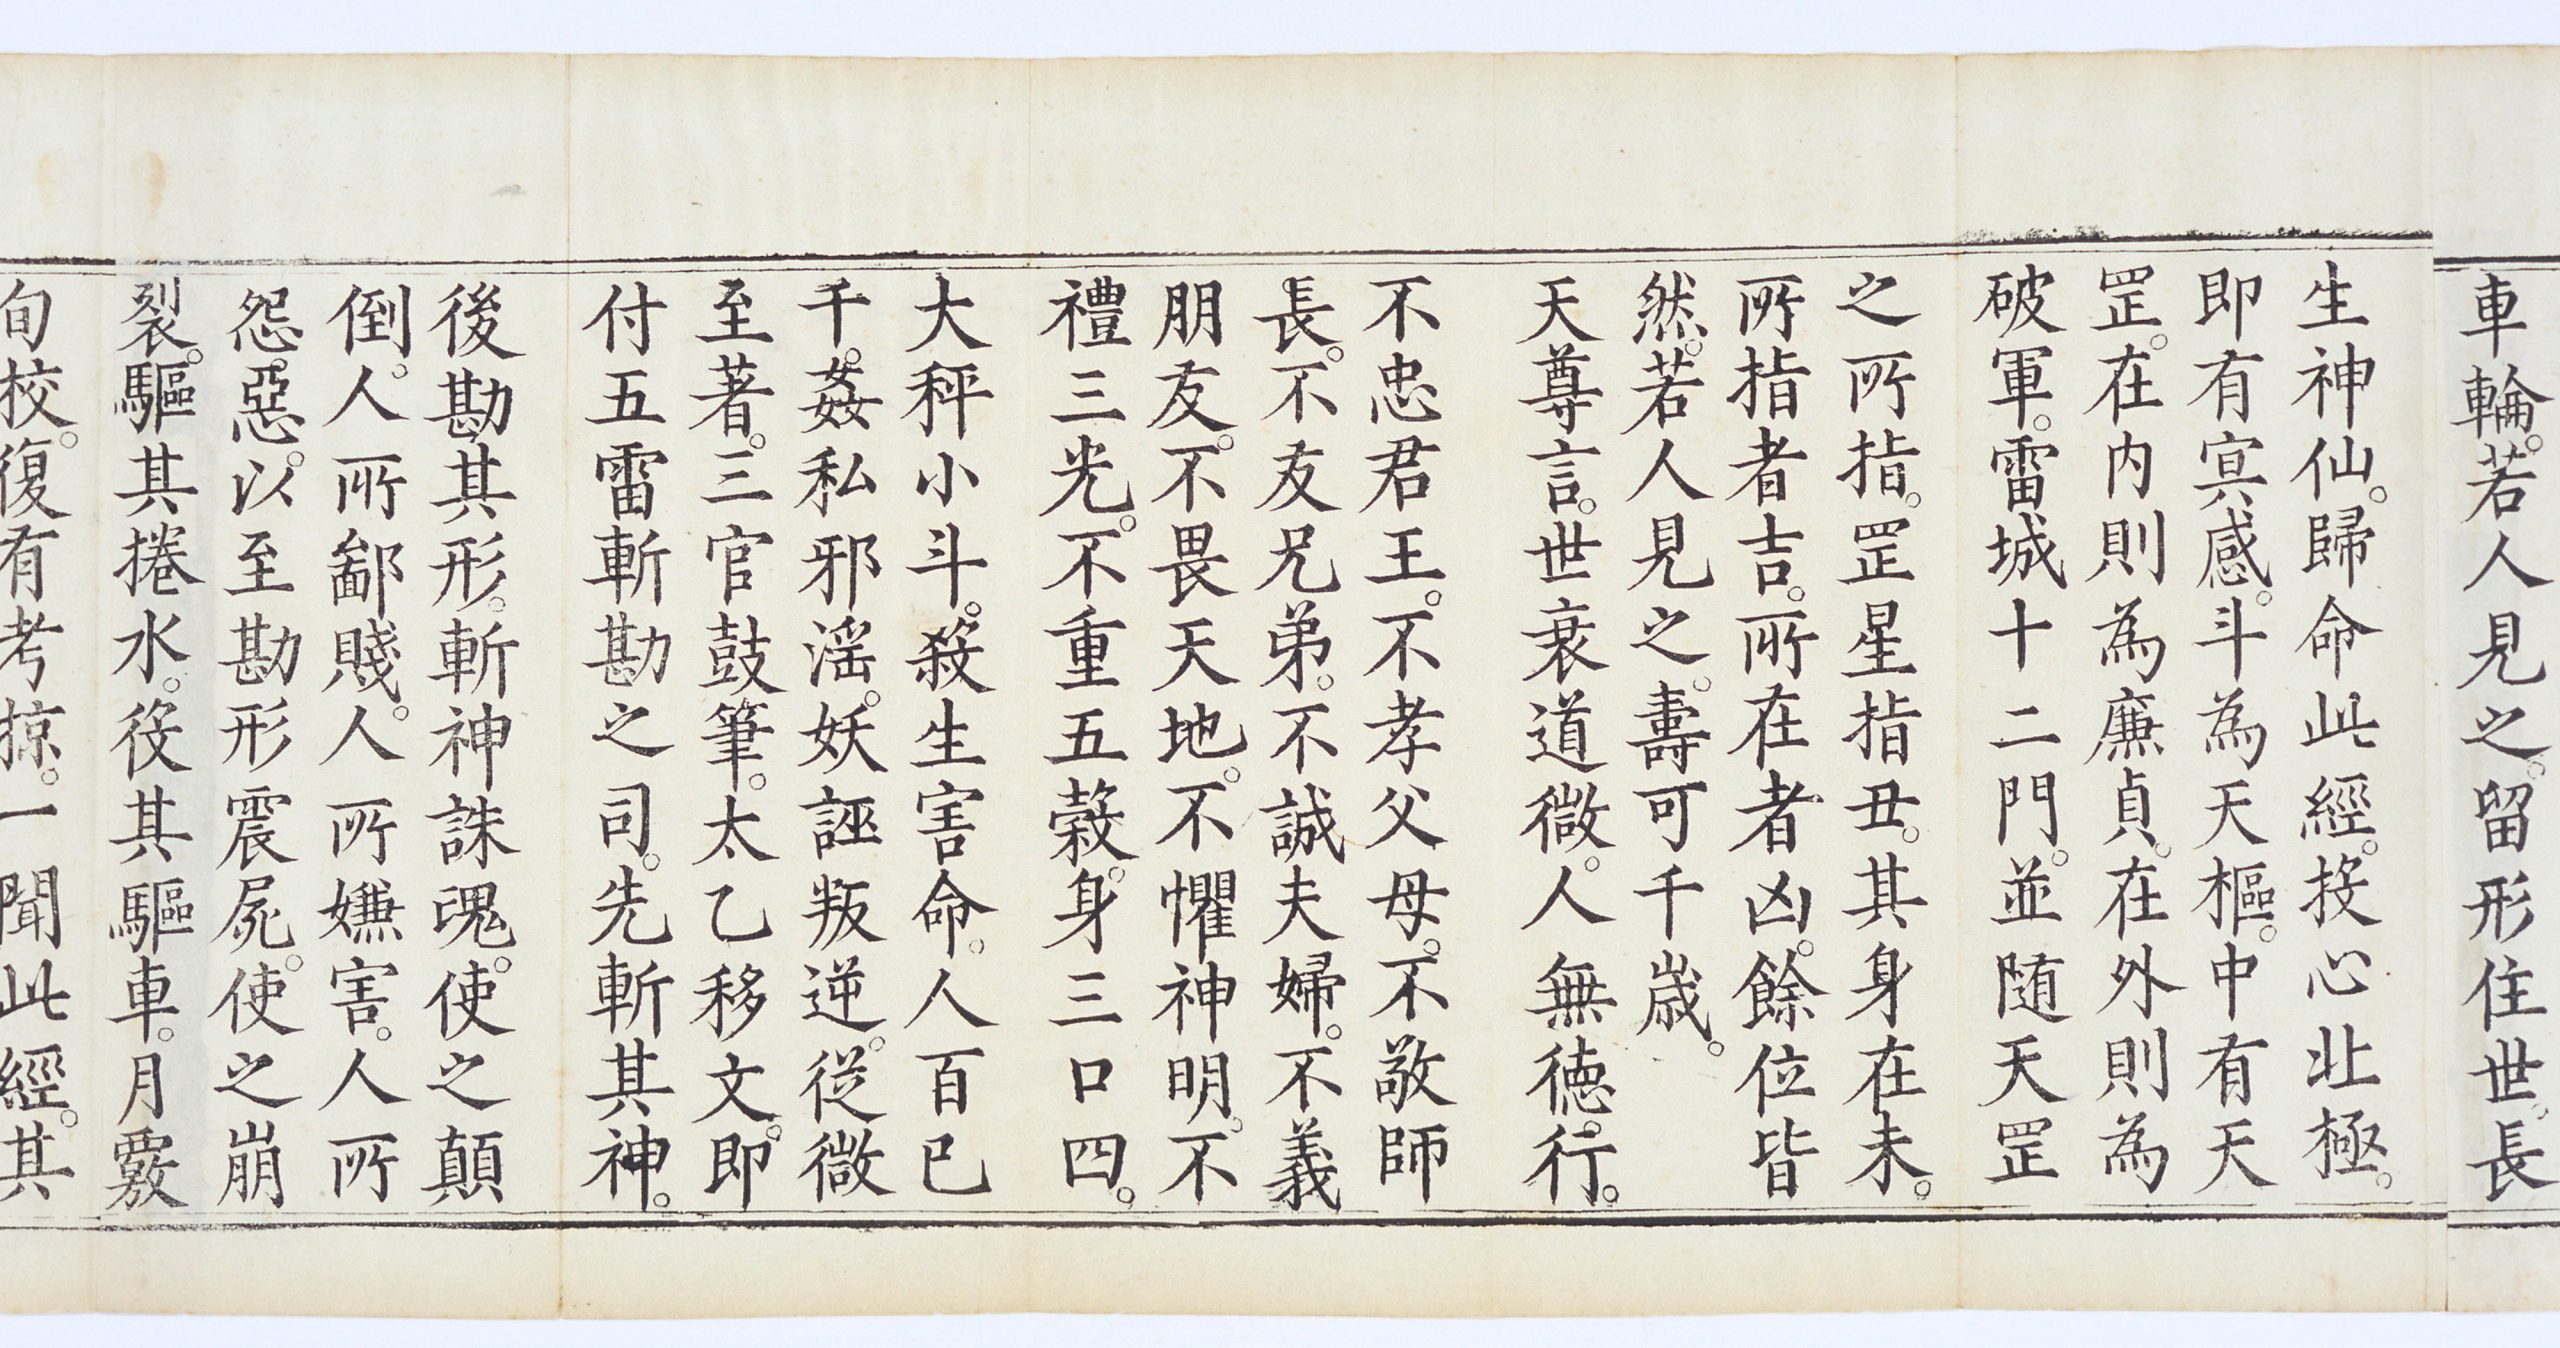 車輪。若人見之。留形住世。長
生神仙。歸命此經。投心北極。
即有冥感。斗為天樞。中有天
罡。在内則為廉貞。在外則為
破軍。雷城十二門。並随天罡
之所指。罡星指丑。其身在未。
所指者吉。所在者凶。餘位皆
然。若人見之。壽可千歳。
天尊言。世衰道微。人無徳行。
不忠君王。不孝父母。不敬師
長。不友兄弟。不誠夫婦。不義
朋友。不畏天地。不懼神明。不
禮三光。不重五穀。身三口四。
大秤小斗。殺生害命。人百己
千。姦私邪淫。妖誣叛逆。従微
至著。三官鼓筆。太乙移文。即
付五雷斬勘之司。先斬其神。
後勘其形。斬神誅魂。使之顛
倒。人所鄙賤。人所嫌害。人所
怨惡。以至勘形震屍。使之崩
裂。驅其捲水。役其驅車。月覈
旬校。復有考掠。一聞此經。其